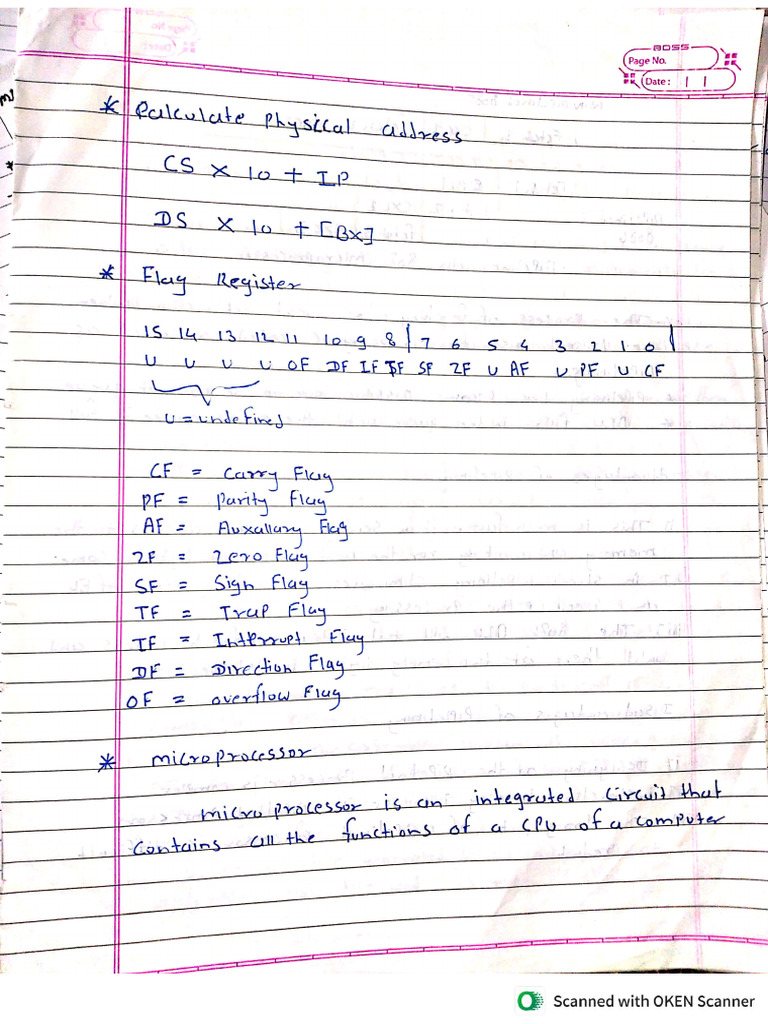 BOSS
Page No.
Date :
* Calculate Physical address
CS × 10 + IP
DS × 10 + [BX]
* Flag Register
15 14 13 12 11 10 9 8 | 7 6 5 4 3 2 1 0 |
U U U U OF DF IF TF SF ZF U AF U PF U CF
U = undefined
CF = Carry Flag
PF = Parity Flag
AF = Auxallary Flag
ZF = Zero Flag
SF = Sign Flag
TF = Trap Flag
IF = Interrupt Flag
DF = Direction Flag
OF = overflow Flag
* microprocessor
micro processor is an integrated circuit that
Contains all the functions of a CPU of a computer
Scanned with OKEN Scanner